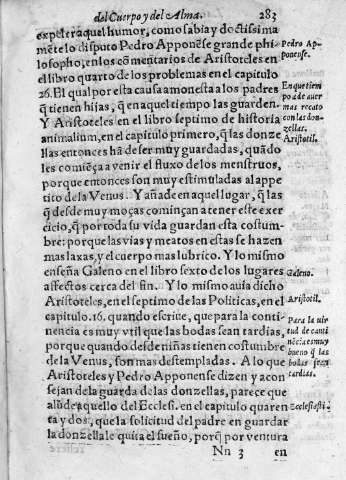 del Cuerpo y del Alma. 283
expeler aquel humor, como sabia y doctissima
mẽte lo disputo Pedro Apponẽse grande phi
losopho, en los comẽtarios de Aristoteles en
el libro quarto de los problemas en el capitulo
26. El qual por esta causa amonesta a los padres
q̃ tienen hijas, q̃ en aquel tiempo las guarden.
Y Aristoteles en el libro septimo de historia
animalium, en el capitulo primero, q̃ las donze
llas entonces hã de ser muy guardadas, quãdo
les comiẽça a venir el fluxo de los menstruos,
porque entonces son muy estimuladas al appe
tito de la Venus. Y añade en aquel lugar, q̃ las
q̃ desde muy moças comiençan a tener este exer
cicio, q̃ por toda su vida guardan esta costum-
bre: porque las vias y meatos en estas se hazen
mas laxas, y el cuerpo mas lubrico. Y lo mismo
enseña Galeno en el libro sexto de los lugares
affectos cerca del fin. Y lo mismo auia dicho
Aristoteles, en el septimo de las Politicas, en el
capitulo. 16. quando escriue, que para la conti-
nencia es muy vtil que las bodas sean tardias,
porque quando desde niñas tienen costumbre
de la Venus, son mas destempladas. A lo que
Aristoteles y Pedro Apponense dizen y acon
sejan de la guarda de las donzellas, parece que
alude aquello del Ecclesi. en el capitulo quaren
ta y dos, que la solicitud del padre en guardar
la donzella le quita el sueño, porq̃ por ventura
Nn 3 en
Pedro Ap-
ponense.
En que tiem
po ẽ de auer
mas recato
con las don-
zellas.
Aristotil.
Galeno.
Aristotil.
Para la vir
tud de canti
nẽcia es muy
bueno q̃ las
bodas sean
tardias.
Ecclesiasti.